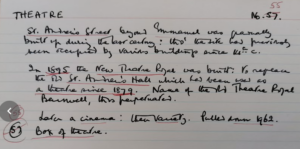 55
THEATRE No. 57.
St. Andrew's Street beyond Emmanuel was generally
built up during the last century: tho' the site had previously
been occupied by various buildings since 16th c.
In 1875 the New Theatre Royal was built: to replace
the old St. Andrew's Hall which had been used as
a theatre since 1879. Name of the old Theatre Royal
Barnwell, thus perpetuated.
Later a cinema: then Variety. Pulled down 1962.
57 Box of theatre.